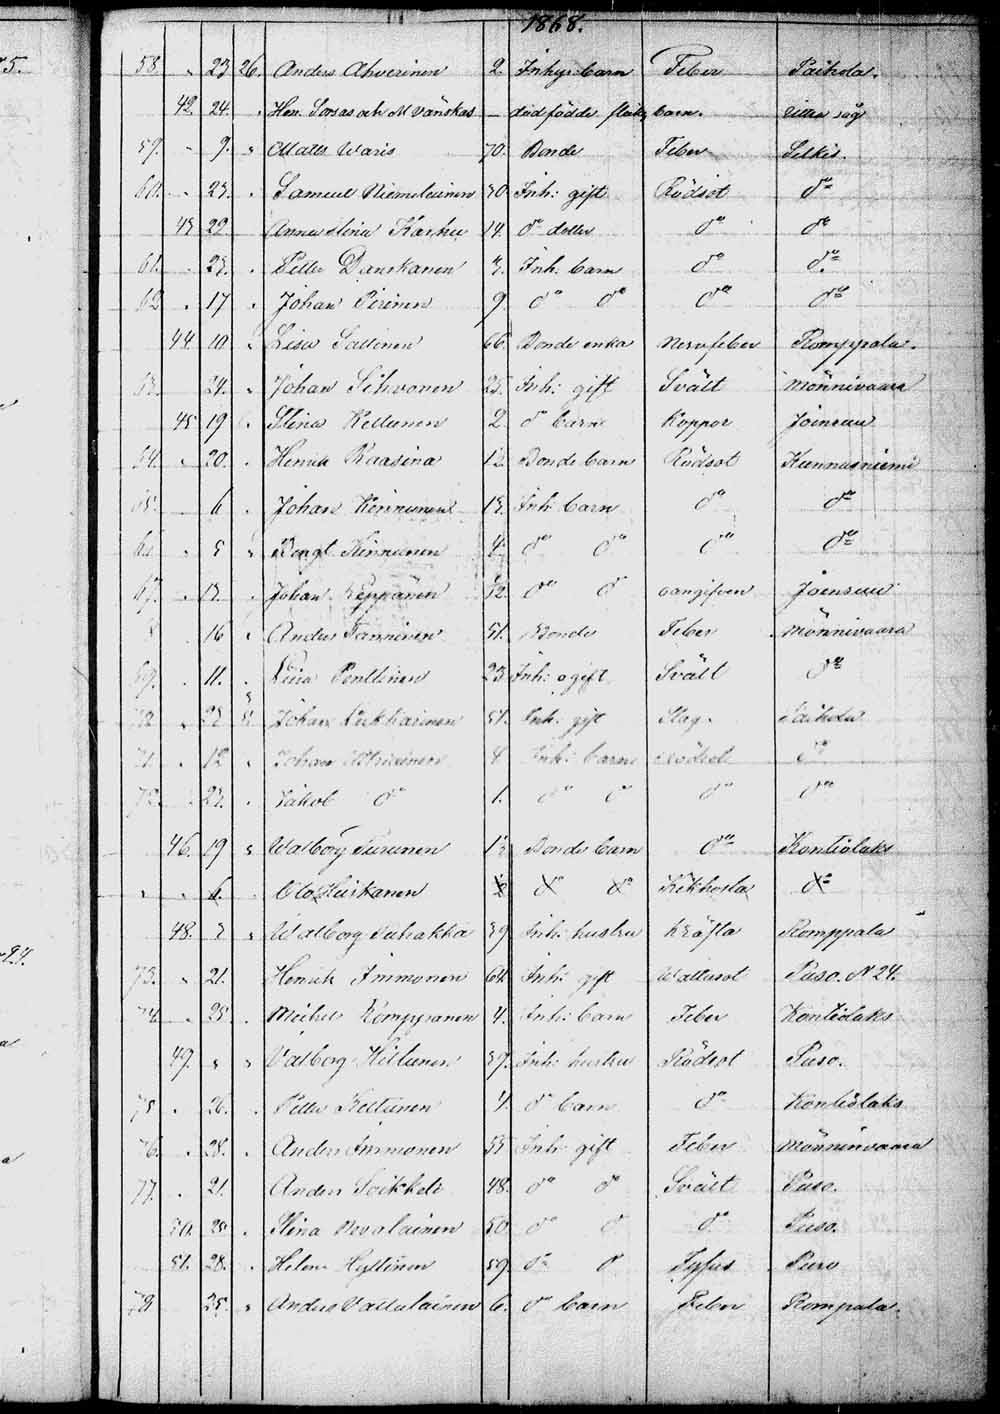 1868.
58 " 23 26. Anders Ahverinen 2. Inhys barn Feber Paihola.
42. 24. " Hen. Sorsas och M Vänskas — död födde flick barn.
59. " 9. " Matts Waris 70. Bonde Feber Selkis.
60. " 23. " Samuel Niemeläinen 30 Inh: gift Rödsot do
43 22 Anna Stina Karhu 14. do dotter do do
61. " 23. " Petter Danskanen Inh. barn do do
62 " 17 " Johan Pirinen 9 do do do do
44. 10 " Lisa Sallinen 66. Bonde enka Nervfeber Romppala.
24. " Johan Sihvonen 25. Inh: gift Svält Mönnivaara
45 19 Stina Kettunen 2. do barn Koppor Joensuu
64. " 20. " Henrik Raasina 12 Bonde barn Rödsot Kunnasniemi
65. 6 " Johan Kinnunen 13. Inh: barn do do
66 " 5 " Bengt Kinnunen 4. do do do do
67. " 13. " Johan Leppänen 12. do do oangifven Joensuu
16 " Anders Tanninen 51. Bonde Feber Mönnivaara
69. " 11. " Lisa Penttinen 23 Inh: ogift Svält do
Johan 51. Inh: gift Slag. Paihola
71. " 12 " Johan 4. Inh: barn Rödsot do
72. " 23. " Jakob do 1. do do do do
46. 19 " Walborg Turunen 13 Bonde barn do Kontiolaks
" " 6. " Olof Huiskanen do do Kikhosta do
48. " Walborg Puhakka 39 Inh: hustru Kräfta Romppala
73. " 21. Henrik Immonen 64. Inh: gift Wattusot Puso. N 24.
74. " 25. " Michel Romppanen 4. Inh: barn Feber Kontiolaks
49. " " Valborg Hiltunen 39. Inh: hustru Rödsot Puso.
75 " 26. " Petter Kettunen 4. do barn do Kontiolaks
76. " 28. " Anders Immonen 35 Inh: gift Feber Mönninvaara
77. " 21. Anders Soikkeli 48. do do Svält Puso.
50. 25 " Stina Nevalainen 50 do do do Puso.
51. 28. " Helena Hyttinen 59. do do Tyfus Puso
78 25. " Anders Vattulainen 6. do barn Feber Rompala.